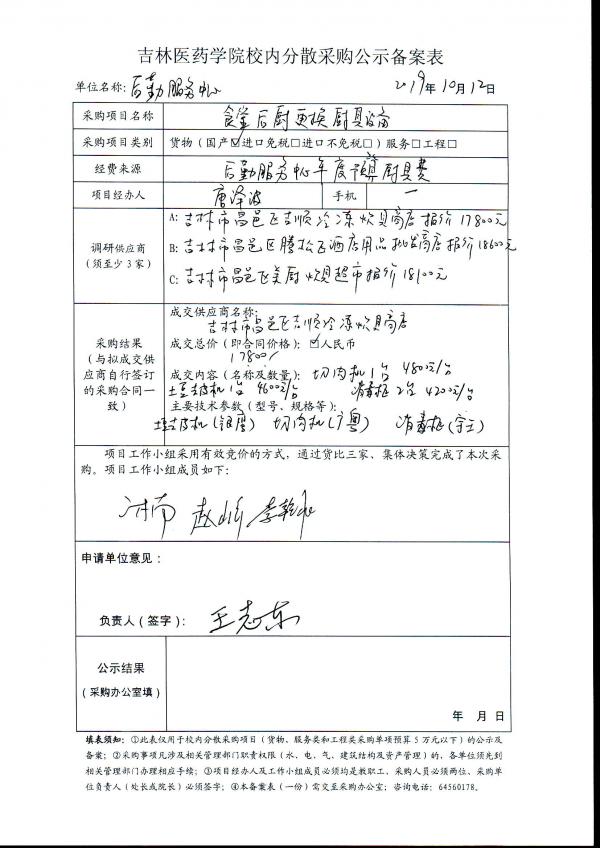 吉林医药学院校内分散采购公示备案表
单位名称: 后勤服务中心 2019年10月12日
采购项目名称 食堂后厨更换厨具设备
采购项目类别 货物（国产☑进口免税□进口不免税□）服务□工程□
经费来源 后勤服务中心年度预算厨具费
项目经办人 唐泽波 手机 一
调研供应商
（须至少3家）
A: 吉林市昌邑区吉顺冷冻炊具商店 报价17800元
B: 吉林市昌邑区腾松玉酒店用品批发商店报价18600元
C: 吉林市昌邑区美厨炊具超市报价18100元
采购结果
（与拟成交供
应商自行签订
的采购合同一
致）
成交供应商名称:
吉林市昌邑区吉顺冷冻炊具商店
成交总价（即合同价格）: ☑人民币
17800/
成交内容（名称及数量）: 切肉机1台 4800元/台
土豆去皮机1台 4600元/台 消毒柜2台 4200元/台
主要技术参数（型号、规格等）:
土豆去皮机(银鹰) 切肉机(广粤) 消毒柜(守士)
项目工作小组采用有效竞价的方式，通过货比三家、集体决策完成了本次采
购。项目工作小组成员如下:
申请单位意见:
负责人（签字）: 王志东
公示结果
（采购办公室填）
年 月 日
填表须知: ①此表仅用于校内分散采购项目（货物、服务类和工程类采购单项预算5万元以下）的公示及
备案; ②采购事项凡涉及相关管理部门职责权限（水、电、气、建筑结构及资产管理）的，各单位须先到
相关管理部门办理相应手续; ③项目经办人及工作小组成员必须均是教职工，采购人员必须两位、采购单
位负责人（处长或院长）必须签字; ④本备案表（一份）需交至采购办公室; 咨询电话: 64560178.